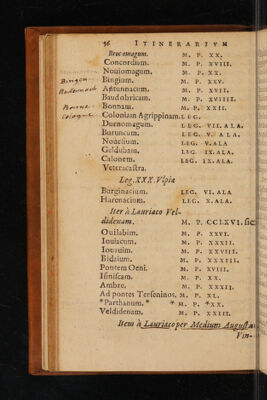 56 ITINERARIVM
Brocomagum. M. P. XX.
Concordium. M. P. XVIII.
Nouiomagum. M. P. XX.
Bingen Bingium. M. P. XXV.
Andernach Antunnacum. M. P. XVII.
Baudobricam. M. P. XVIIII.
Bonne Bonnam. M. P. XXII.
Cologne Coloniam Agrippinam. LEG.
Durnomagum. LEG. VII. ALA.
Buruncum. LEG. V. ALA
Nouesium. LEG. V. ALA
Geldubam. LEG. IX. ALA.
Calonem. LEG. IX. ALA.
Veteracastra.
Leg. XXX. Vlpia
Burginacium. LEG. VI. ALA
Harenacium. LEG. X. ALA.
Iter à Lauriaco Vel-
didenam. M. P. CCLXVI. sic
Ouilabim. M. P. XXVI.
Iouiacum. M. P. XXXII.
Iouauim. M. P. XXVIII.
Bidaium. M. P. XXXIII.
Pontem Oeni. M. P. XVIII.
Isiniscam. M. P. XX.
Ambre. M. P. XXXII.
Ad pontes Terseninos. M. P. XL.
*Parthanum. * * M. P. *XX.
Veldidenam. M. P. XXIII.
Item à Lauriaco per Medium Augusta
Vin-